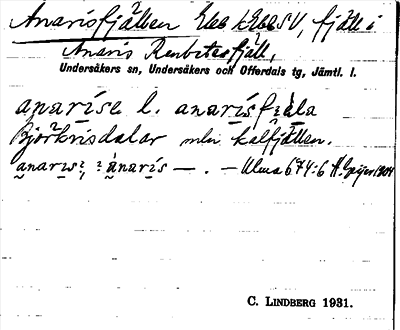 Anarisfjällen Eko 12Eko SV, fjäll i
Anaris Renbetesfjäll,
Undersåkers sn, Undersåkers och Offerdals tg, Jämtl. l.
anarise l. anarisfjäla
Björkrisdalar mln kalfjällen.
anaris, anaris — . — Ulma 674:6 H. Geijer 1904
C. LINDBERG 1931.